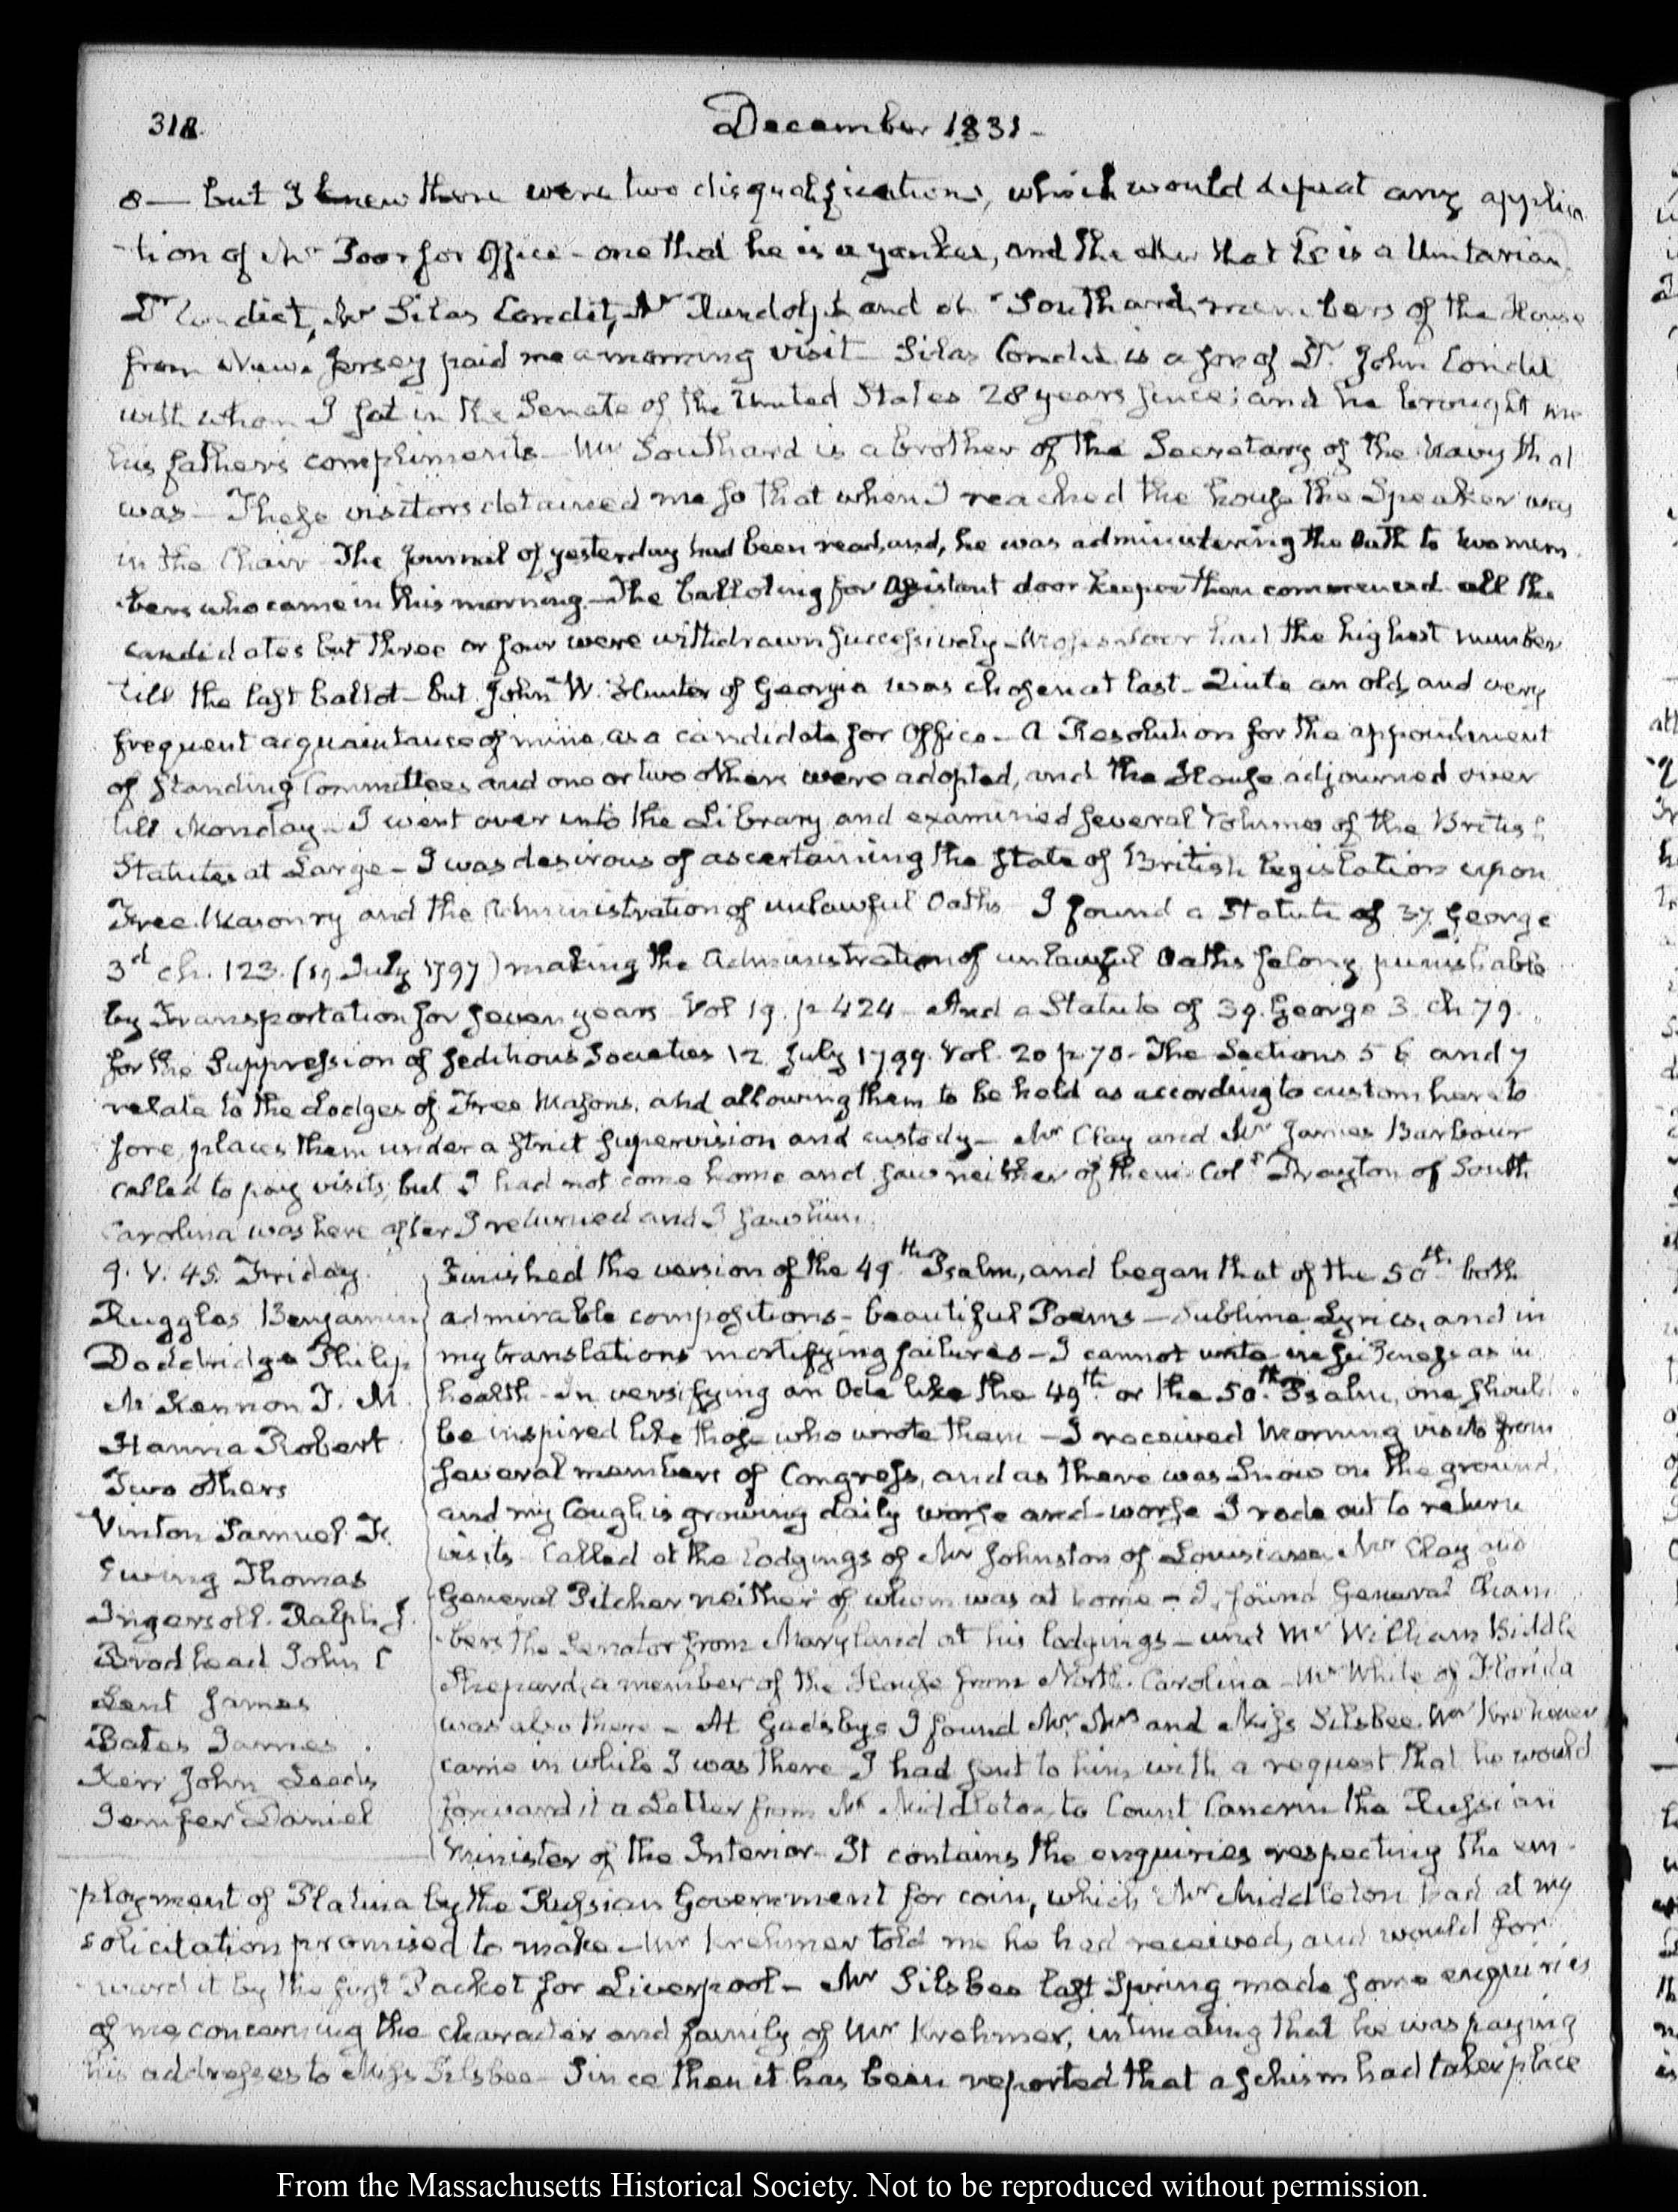 318.
December 1831.
8— but I knew there were two disqualifications, which would defeat any applica
tion of Mr Poor for Office – one that he is a yankee, and the other that he is a Unitarian.
Dr Condict, Mr Silas Condit, Mr Randolph and Mr Southard, members of the House
from New Jersey paid me a morning visit – Silas Condit is a son of Dr. John Condit
with whom I sat in the Senate of the United States 28 years since; and he brought me
his father's compliments – Mr Southard is a brother of the Secretary of the Navy that
was – These visitors detained me so that when I reached the house the Speaker was
in the Chair – The Journal of yesterday had been read, and, he was administering the Oath to two mem
bers who came in this morning. – The balloting for Assistant door keeper then commenced all the
candidates but three or four were withdrawn successively – Moses Poor had the highest number
till the last ballot – but John W. Hunter of Georgia was chosen at last – Quite an old, and very
frequent acquaintance of mine, as a candidate for Office – A Resolution for the appointment
of Standing Committees and one or two others were adopted, and the House adjourned over
till Monday – I went over into the Library and examined several Volumes of the British
Statutes at Large – I was desirous of ascertaining the state of British Legislation upon
Free Masonry and the Administration of unlawful Oaths I found a Statute of 37. George
3d ch. 123. (19. July 1797) making the Administration of unlawful Oaths felony punishable
by Transportation for seven years Vol 19. p 424 – And a Statute of 39. George 3. ch 79.
for the Suppression of seditious Societies 12 July 1799. Vol. 20 p 70 – The Sections 5 6 and 7
relate to the Lodges of Free Masons, and allowing them to be held as according to custom hereto
fore, places them under a strict supervision and custody – Mr Clay and Mr James Barbour
called to pay visits, but I had not come home and saw neither of them. Coll Drayton of South
Carolina was here after I returned and I saw him.
9. V. 45. Friday.
Ruggles Benjamin
Doddridge Philip
McKennon T. M.
Hanna Robert
Two others
Vinton Samuel F.
Ewing Thomas
Ingersoll. Ralph J.
Brodhead John C
Lent James
Bates James
Kerr John Leeds
Jenifer Daniel
Finished the version of the 49th Psalm, and began that of the 50th both
admirable compositions – beautiful Poems – Sublime Lyrics, and in
my translations mortifying failures – I cannot write in sickness as in
health – In versifying an Ode like the 49th or the 50th Psalm, one should
be inspired like those who wrote them – I received Morning visits from
several members of Congress, and as there was Snow on the ground,
and my Cough is growing daily worse and worse I rode out to return
visits Called at the lodgings of Mr Johnston of Louisiana Mr Clay and
General Pitcher neither of whom was at home – I found General Cham
bers the Senator from Maryland at his lodgings – and Mr William Biddle
Shepard, a member of the House from North Carolina – Mr White of Florida
was also there – At Gadsby's I found Mr, Mrs and Miss Silsbee. Mr Krehmer
came in while I was there I had sent to him with a request that he would
forward it a Letter from Mr Middleton, to Count Cancrin the Russian
Minister of the Interior – It contains the enquiries respecting the em
ployment of Platina by the Russian Government for coin, which Mr Middleton had at my
solicitation promised to make – Mr Krehmer told me he had received, and would for
ward it by the first Packet for Liverpool – Mr Silsbee last Spring made some enquiries
of me concerning the character and family of Mr Krehmer, intimating that he was paying
his addresses to Miss Silsbee – Since then it has been reported that a schism had taken place
From the Massachusetts Historical Society. Not to be reproduced without permission.